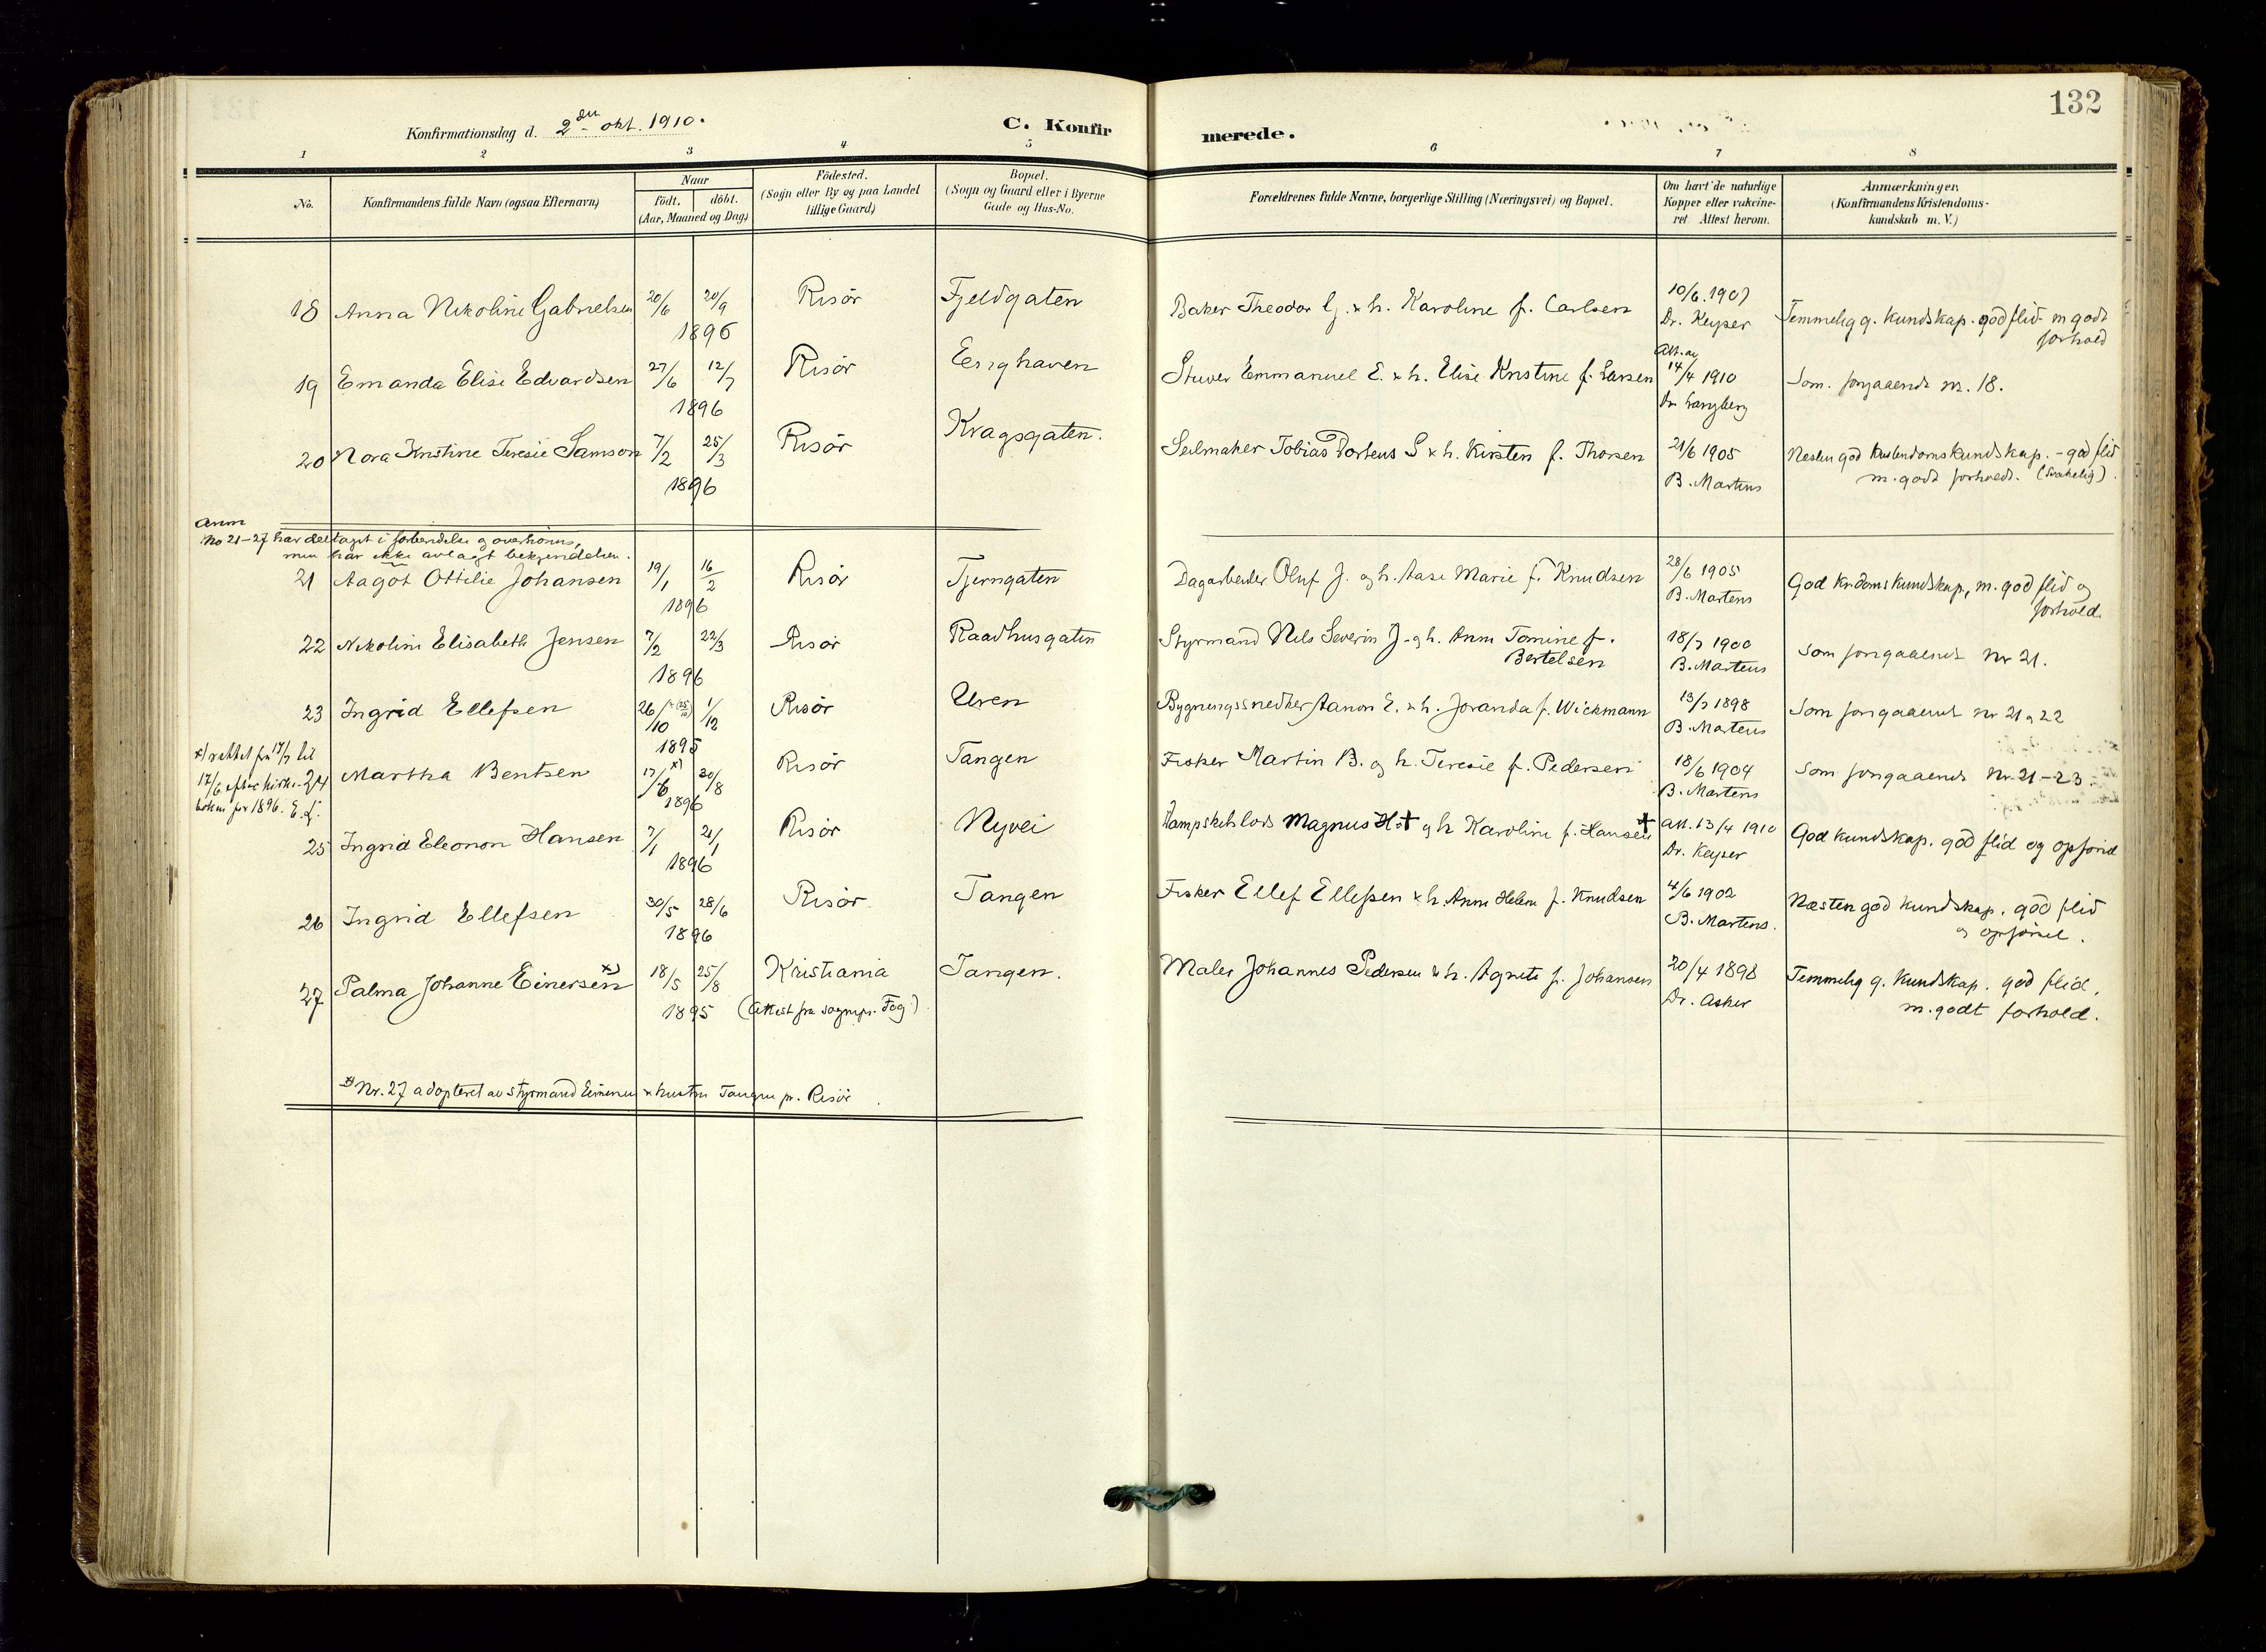 132
Konfirmationsdag d. 2den okt. 1910.
C. Konfirmerede.
1 2 3 4 5 6 7 8
No.
Konfirmandens fulde Navn (ogsaa Efternavn)
Naar
födt. döbt.
(Aar, Maaned og Dag)
Födested.
(Sogn eller By og paa Landet
tillige Gaard)
Bopæl.
(Sogn og Gaard eller i Byerne
Gade og Hus-No.
Forældrenes fulde Navne, borgerlige Stilling (Næringsvei) og Bopæl.
Om havt de naturlige
Kopper eller vakcine-
ret. Attest herom.
Anmærkninger.
(Konfirmandens Kristendoms-
kundskab m. V.)
18 Anna Nikoline Gabrielsen 20/6 20/9 1896 Risör Fjeldgaten Baker Theodor G. & h. Karoline f. Carlsen 10/6 1907 Dr. Keyser Temmelig g. kundskap. god flid m godt
forhold
19 Emanda Elise Edvardsen 27/6 12/7 1896 Risör Enghaven Stuver Emmanuel E. & h. Elise Kristine f. Larsen Att. av 14/4 1910 Som forgaaende nr. 18.
20 Nora Kristine Teresie Samson 7/2 25/3 1896 Risör Kragsgaten. Seilmaker Tobias S & h. Kirsten f. Thorsen 21/6 1905 B. Martens Næsten god kristendomskundskap. - god flid
m. godt forhold. (Svakelig).
Anm
No 21-27 har deltaget i forberedelse og overhöring,
men har ikke avlagt bekjendelsen.
21 Aagot Ottilie Johansen 19/1 16/2 1896 Risör Tjerngaten Dagarbeider Oluf J. og h. Aase Marie f. Knudsen 28/6 1905 B. Martens God krdomskundskap, m. god flid og
forhold.
22 Nikoline Elisabeth Jensen 7/2 22/3 1896 Risör Raadhusgaten Styrmand Nils Severin J. og h. Anne Tomine f.
Bertelsen 18/7 1900 B. Martens Som forgaaende nr 21.
23 Ingrid Ellefsen 26/10 1/12 1895 Risör Uren Bygningssnedker Aanon E. & h. Joranda f. Wickmann 13/7 1898 B. Martens Som forgaaende nr 21 og 22
x) rettet fra 17/7 til
17/6 efter kirke-
boken for 1896. E. f.
24 Martha Bentsen 17/6 x) 30/8 1896 Risör Tangen Fisker Martin B. og h. Teresie f. Pedersen 18/6 1904 B. Martens Som forgaaende Nr. 21-23
25 Ingrid Eleonore Hansen 7/1 21/1 1896 Risör Nyvei Magnus H. † og h Karoline f. Hansen † Att. 13/4 1910 Dr. Keyser God kundskap. god flid og opförsel
26 Ingrid Ellefsen 30/5 28/6 1896 Risör Tangen Fisker Ellef Ellefsen & h. Anne Helene f. Knudsen 4/6 1902 B. Martens. Næsten god kundskap. god flid
og opförsel.
27 Palma Johanne Einersen x) 18/5 25/8 1895 Kristiania
(Attest fra sognepr. ) Tangen. Maler Johannes Pedersen & h. Agnete f. Johansen 20/4 1898 Dr. Asker Temmelig g. kundskap. god flid.
m. godt forhold.
x) Nr. 27 adopteret av styrmand Einersen & hustru Tangen pr. Risör